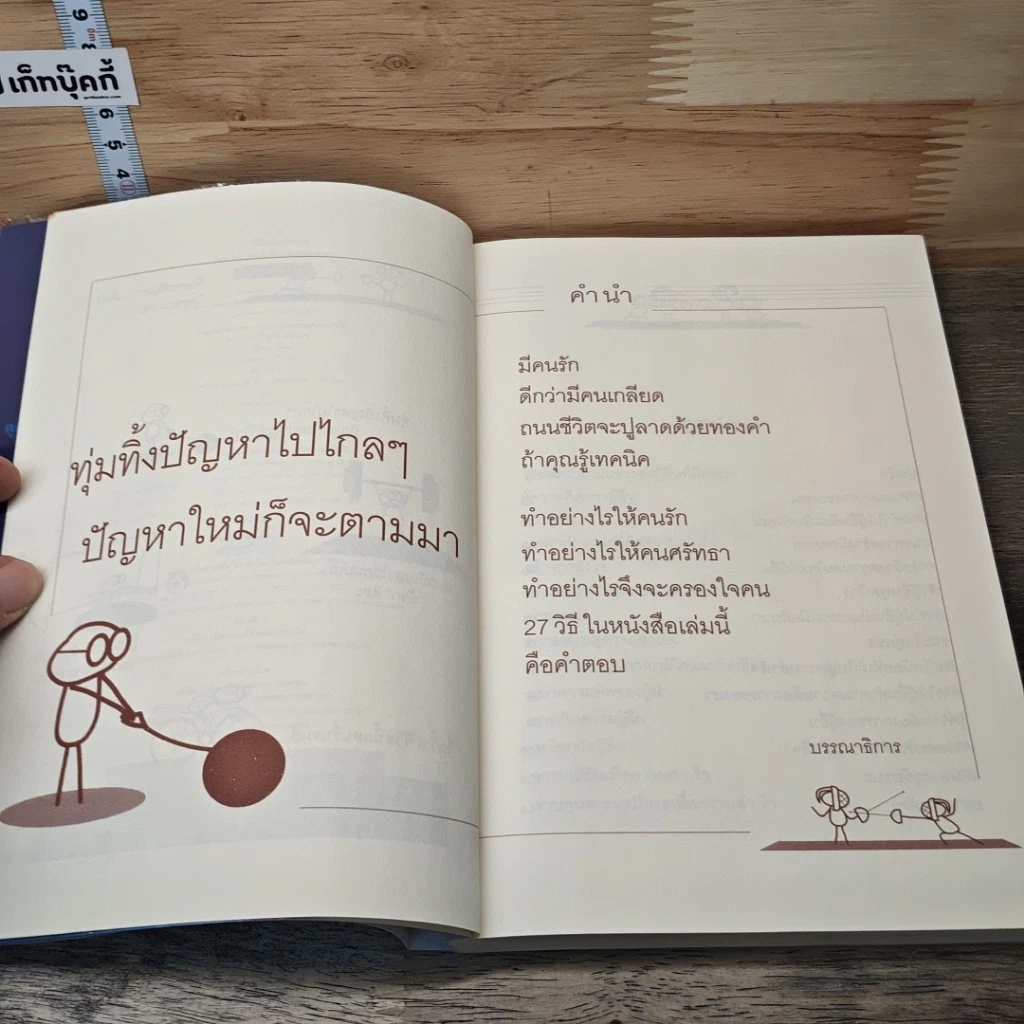 9
8
เก็ทบุ๊คกี้
6
5
4
ทุ่มทิ้งปัญหาไปไกลๆ
ปัญหาใหม่ก็จะตามมา
คำนำ
มีคนรัก
ดีกว่ามีคนเกลียด
ถนนชีวิตจะปูลาดด้วยทองคำ
ถ้าคุณรู้เทคนิค
ทำอย่างไรให้คนรัก
ทำอย่างไรให้คนศรัทธา
ทำอย่างไรจึงจะครองใจคน
27 วิธี ในหนังสือเล่มนี้
คือคำตอบ
บรรณาธิการ